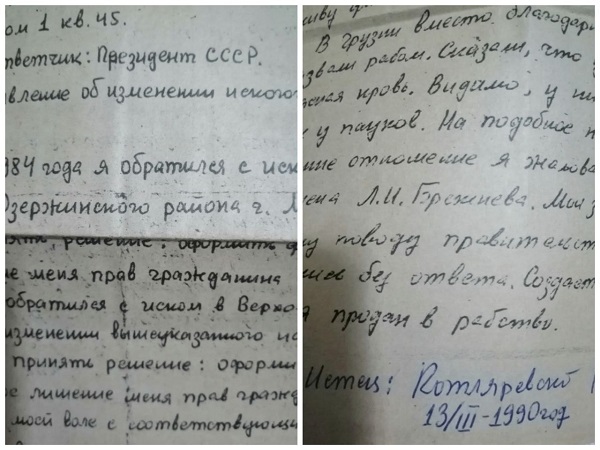 ом 1 кв. 45.
тветчик: Президент СССР.
вление об изменении исково
984 года я обратился с иск
Дзержинского района г.
нять решение: оформить
ие меня прав гражданина
обратился с иском в Верхо
изменении вышеуказанного ис
принять решение: оформи
ое лишение меня прав гражд
моей воле с соответствующи
В Грузии вместо благодар
звали рабом. Сказали, что
ская кровь. Видимо, у
у пауков. На подобное
ние отношение я жалова
мена Л.И. Брежнева. Мои
у поводу правительст
без ответа. Создаёт
продан в рабство.
Истец: Котляревский
13/III-1990год